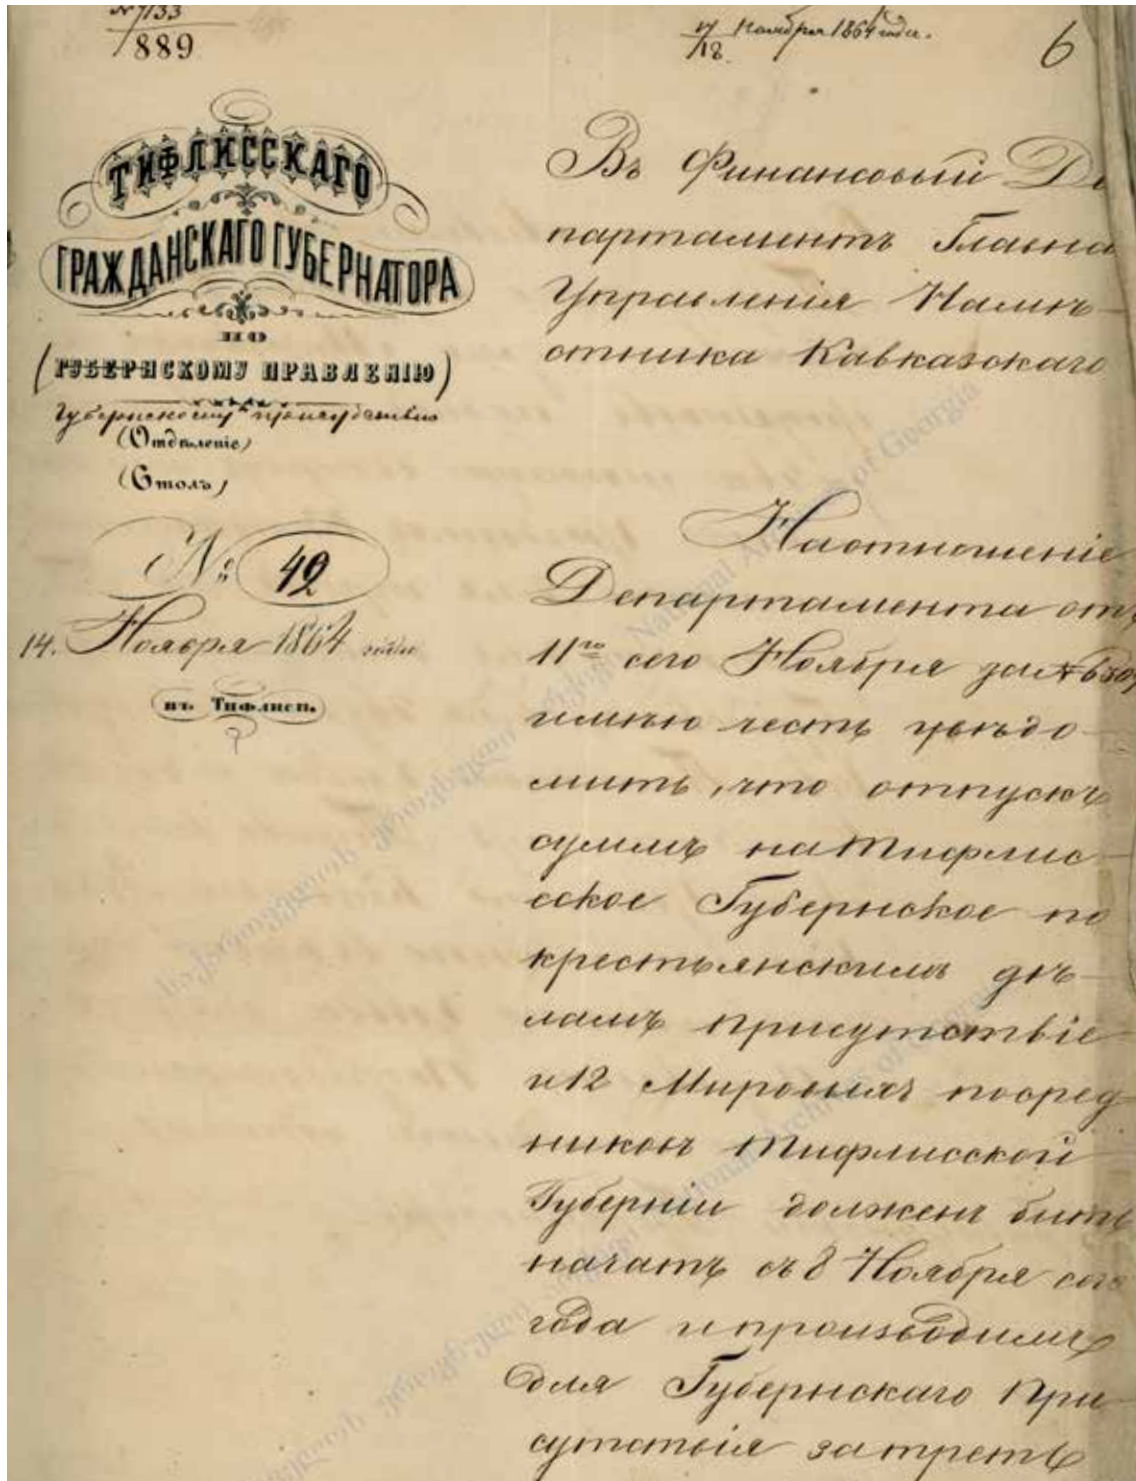 № 7133
889
17/18 Ноября 1864 года.
6
ТИФЛИССКАГО
ГРАЖДАНСКАГО ГУБЕРНАТОРА
ПО
(ГУБЕРНСКОМУ ПРАВЛЕНІЮ)
Губернскому присутствію
(Отдѣленіе)
(Столъ)
№ 42
14. Ноября 1864 года
въ Тифлисѣ.
Въ Финансовый Де
партаментъ Главна
Управленія Намѣ-
стника Кавказскаго
На отношеніе
Департамента отъ
11го сего Ноября за №
имѣю честь увѣдо-
мить, что отпускъ
суммъ на Тифлис-
ское Губернское по
крестьянскимъ дѣ-
ламъ присутствіе
и 12 Мировыхъ посред
никовъ Тифлисской
Губерніи долженъ быть
начатъ съ 8 Ноября сего
года и производимъ
для Губернскаго При
сутствія за треть
National Archives of Georgia